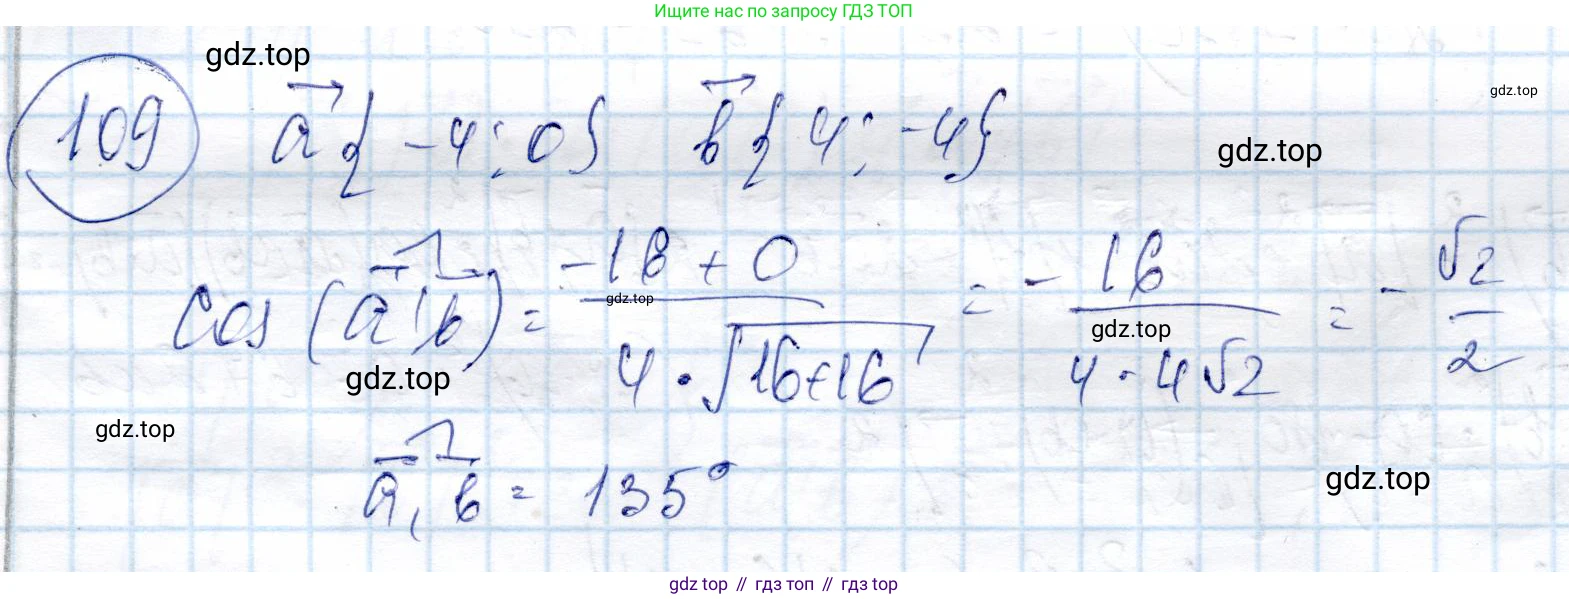 Ищите нас по запросу ГДЗ ТОП
gdz.top
109 a⃗ {-4; 0} b⃗ {4; -4}
gdz.top
gdz.top
cos (a⃗, b⃗) = (-16 + 0) / (4 · √(16+16)) = - 16 / (4 · 4√2) = - √2 / 2
gdz.top
gdz.top
gdz.top
gdz.top
a⃗, b⃗ = 135°
gdz.top
gdz top // гдз топ // гдз top